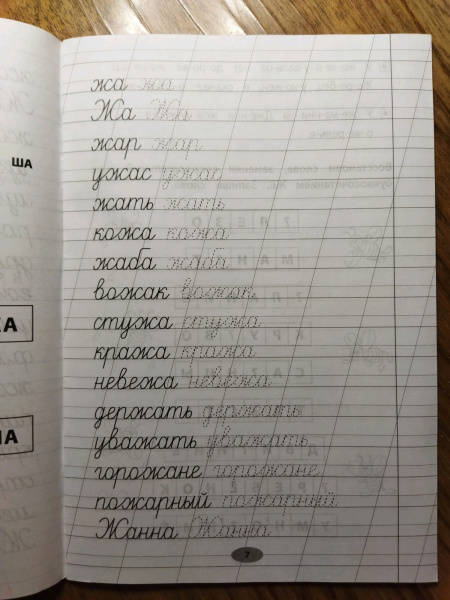 жа жа
Жа Жа
жар жар
ША
ужас ужас
жать жать
кожа кожа
жаба жаба
вожак вожак
стужа стужа
кража кража
невежа невежа
держать держать
уважать уважать
горожане горожане
пожарный пожарный
Жанна Жанна
7